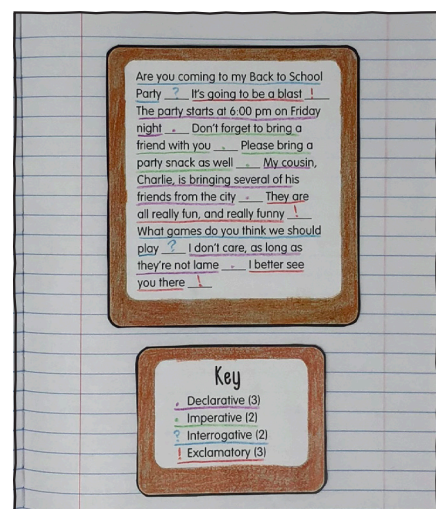 Are you coming to my Back to School
Party ? It's going to be a blast !
The party starts at 6:00 pm on Friday
night . Don't forget to bring a
friend with you . Please bring a
party snack as well . My cousin,
Charlie, is bringing several of his
friends from the city . They are
all really fun, and really funny !
What games do you think we should
play ? I don't care, as long as
they're not lame . I better see
you there !
Key
. Declarative (3)
. Imperative (2)
? Interrogative (2)
! Exclamatory (3)